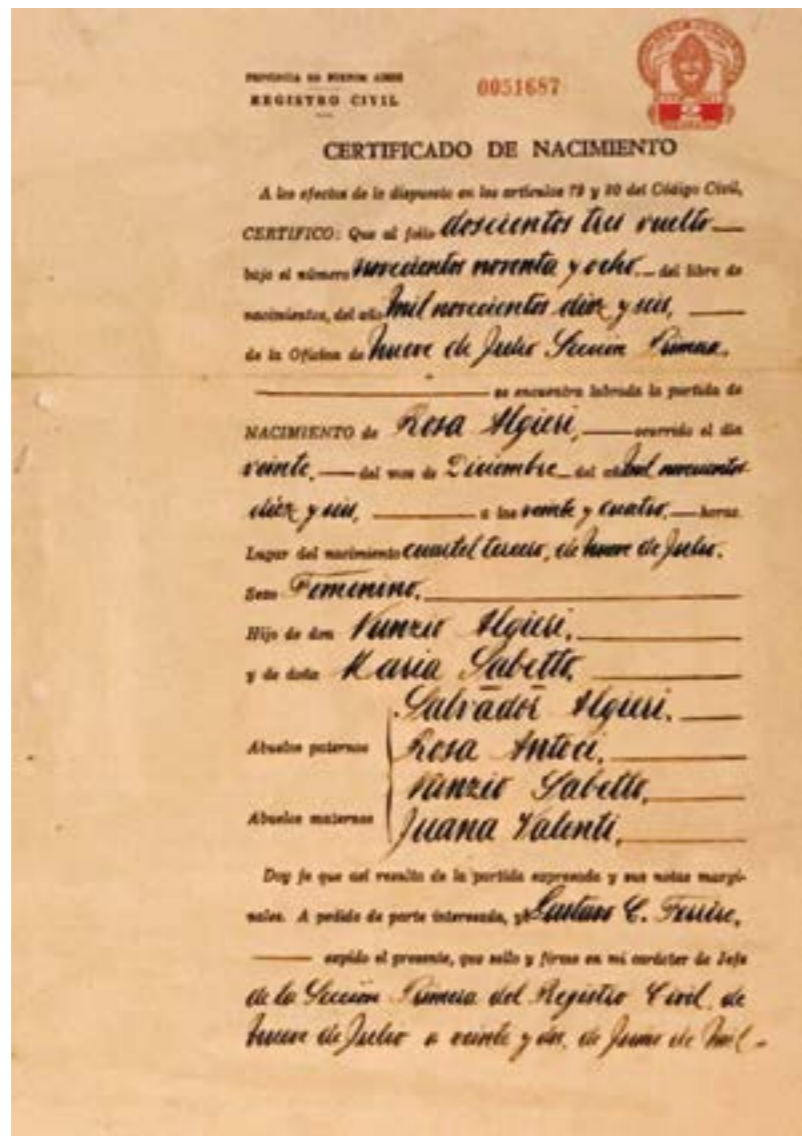 PROVINCIA DE BUENOS AIRES
REGISTRO CIVIL
0051687
2
CERTIFICADO DE NACIMIENTO
A los efectos de lo dispuesto en los artículos 79 y 80 del Código Civil,
CERTIFICO: Que al folio doscientos tres vuelto
bajo el número novecientos noventa y ocho. del libro de
nacimientos, del año mil novecientos diez y seis,
de la Oficina de Nueve de Julio Sección Primera.
se encuentra labrada la partida de
NACIMIENTO de Rosa Algieri, ocurrido el día
veinte, del mes de Diciembre del año mil novecientos
diez y seis, a las veinte y cuatro, horas.
Lugar del nacimiento cuartel tercero, de Nueve de Julio.
Sexo Femenino,
Hijo de don Nunzio Algieri,
y de doña Maria Sabetto,
Salvador Algieri.
Abuelos paternos Rosa Antoci,
Nunzio Sabetto,
Abuelos maternos Juana Valenti,
Doy fe que así resulta de la partida expresada y sus notas margi-
nales. A pedido de parte interesada, yo Gustavo C.
expido el presente, que sello y firmo en mi carácter de Jefe
de la Sección Primera del Registro Civil de
Nueve de Julio a veinte y dos, de Junio de Mil-